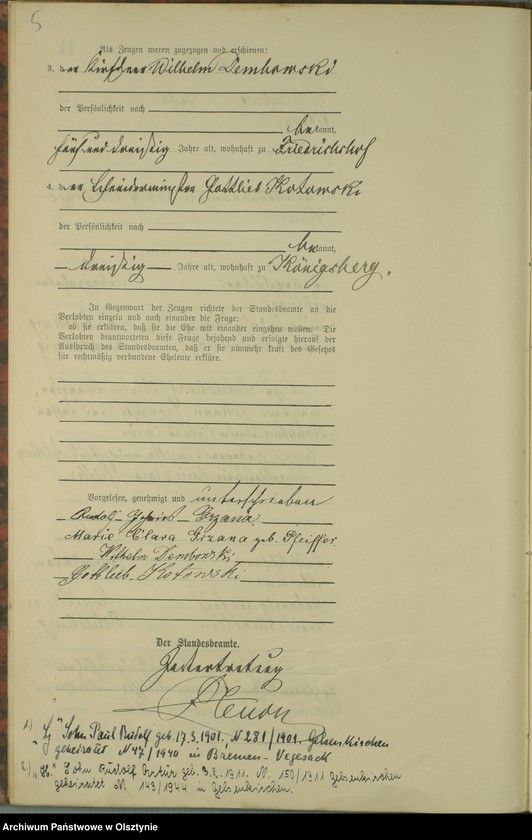 5
Als Zeugen waren zugezogen und erschienen:
3. der Wilhelm Dembowski
der Persönlichkeit nach
bekannt,
fünfunddreißig Jahre alt, wohnhaft zu Friedrichshof
4. der Schneidermeister Gottlieb Kotowski
der Persönlichkeit nach
bekannt,
dreißig Jahre alt, wohnhaft zu Königsberg.
In Gegenwart der Zeugen richtete der Standesbeamte an die
Verlobten einzeln und nach einander die Frage:
ob sie erklären, daß sie die Ehe mit einander eingehen wollen. Die
Verlobten beantworteten diese Frage bejahend und erfolgte hierauf der
Ausspruch des Standesbeamten, daß er sie nunmehr kraft des Gesetzes
für rechtmäßig verbundene Eheleute erkläre.
Vorgelesen, genehmigt und unterschrieben
Rudolf Grzana.
Marie Clara Grzana geb. Pfeiffer
Wilhelm Dembowski
Gottlieb Kotowski
Der Standesbeamte.
In Vertretung
1) Sohn Paul Rudolf geb. 17.3.1901. N 281/1901. Gelsenkirchen
geheiratet N 47/1940 in Bremen-Vegesack
2) Sohn Rudolf Artur geb. 3.2.1911. N. 150/1911 Gelsenkirchen
geheiratet N. 143/1944 in Gelsenkirchen.
Archiwum Państwowe w Olsztynie